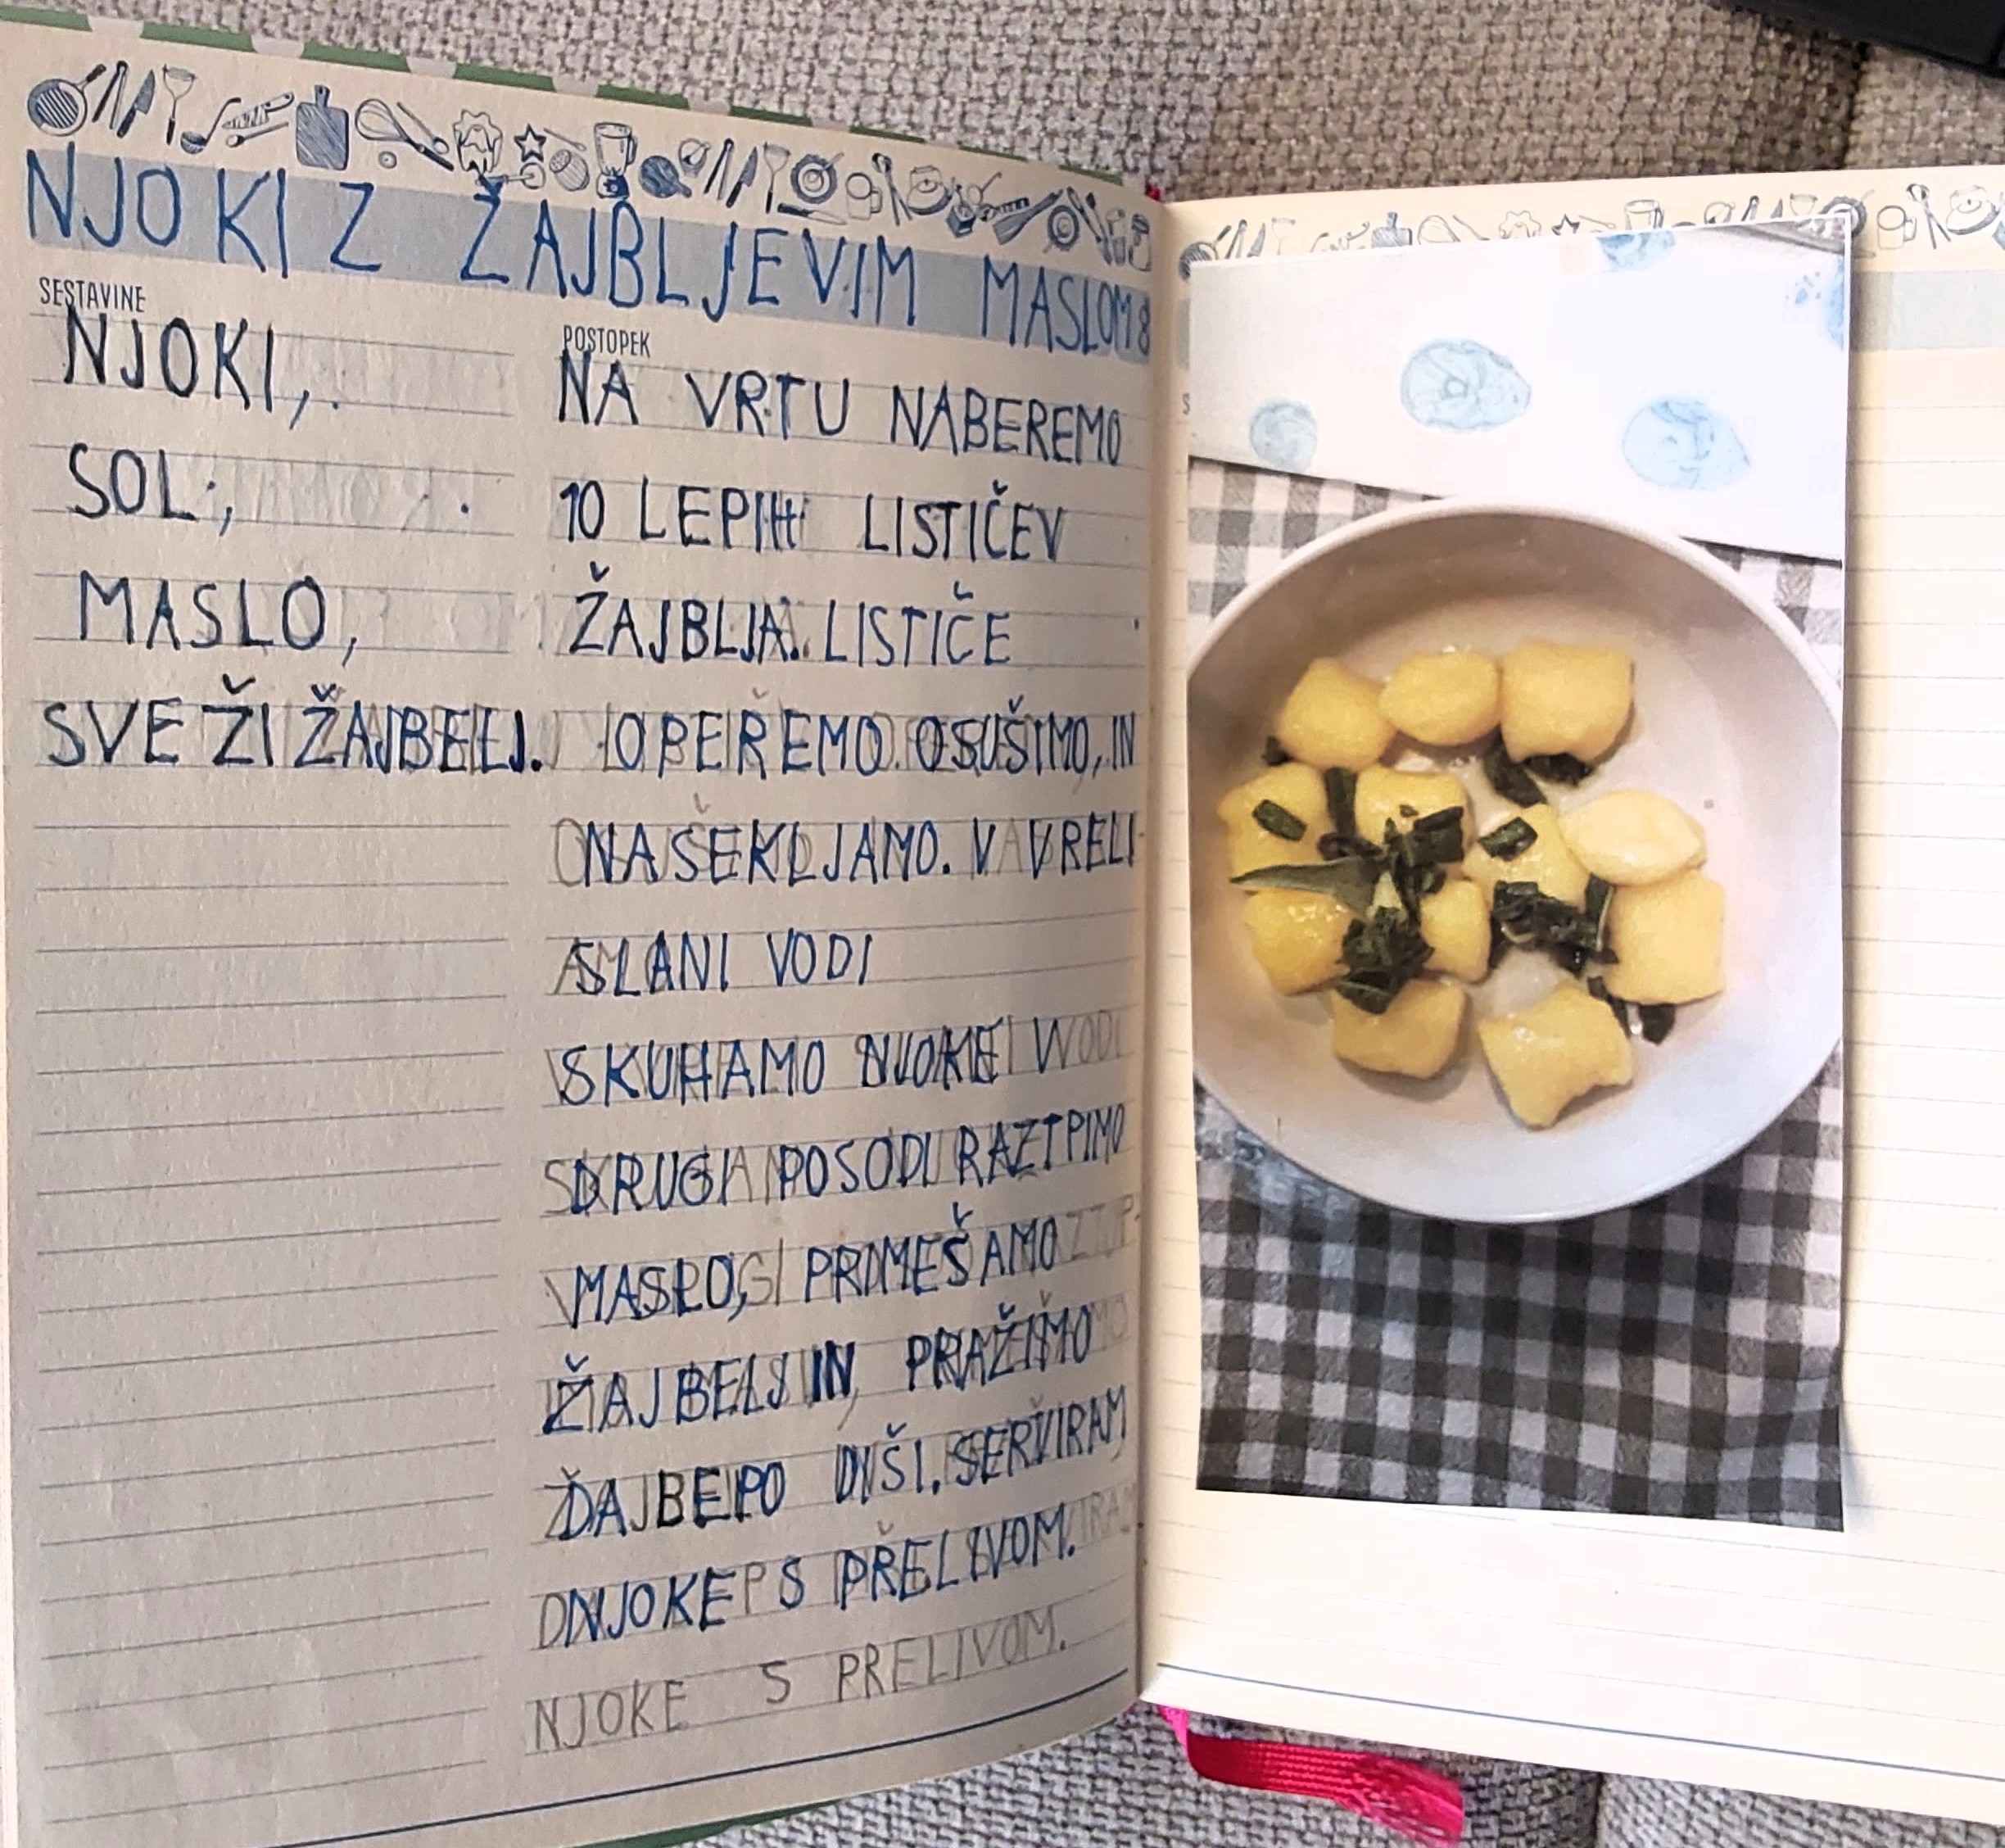 NJOKI Z ŽAJBLJEVIM MASLOM 8
SESTAVINE
NJOKI,
SOL,
MASLO,
SVEŽI ŽAJBELJ.
POSTOPEK
NA VRTU NABEREMO
10 LEPIH LISTIČEV
ŽAJBLJA. LISTIČE
OPEREMO OSUŠIMO, IN
NASEKLJAMO. V VRELI
SLANI VODI
SKUHAMO NJOKE V
DRUGI POSODI RAZTPIMO
MASLO, PRIMEŠAMO
ŽAJBELJ IN PRAŽIMO
DA LEPO DIŠI. SERVIRAM
NJOKE S PRELIVOM.
NJOKE S PRELIVOM.